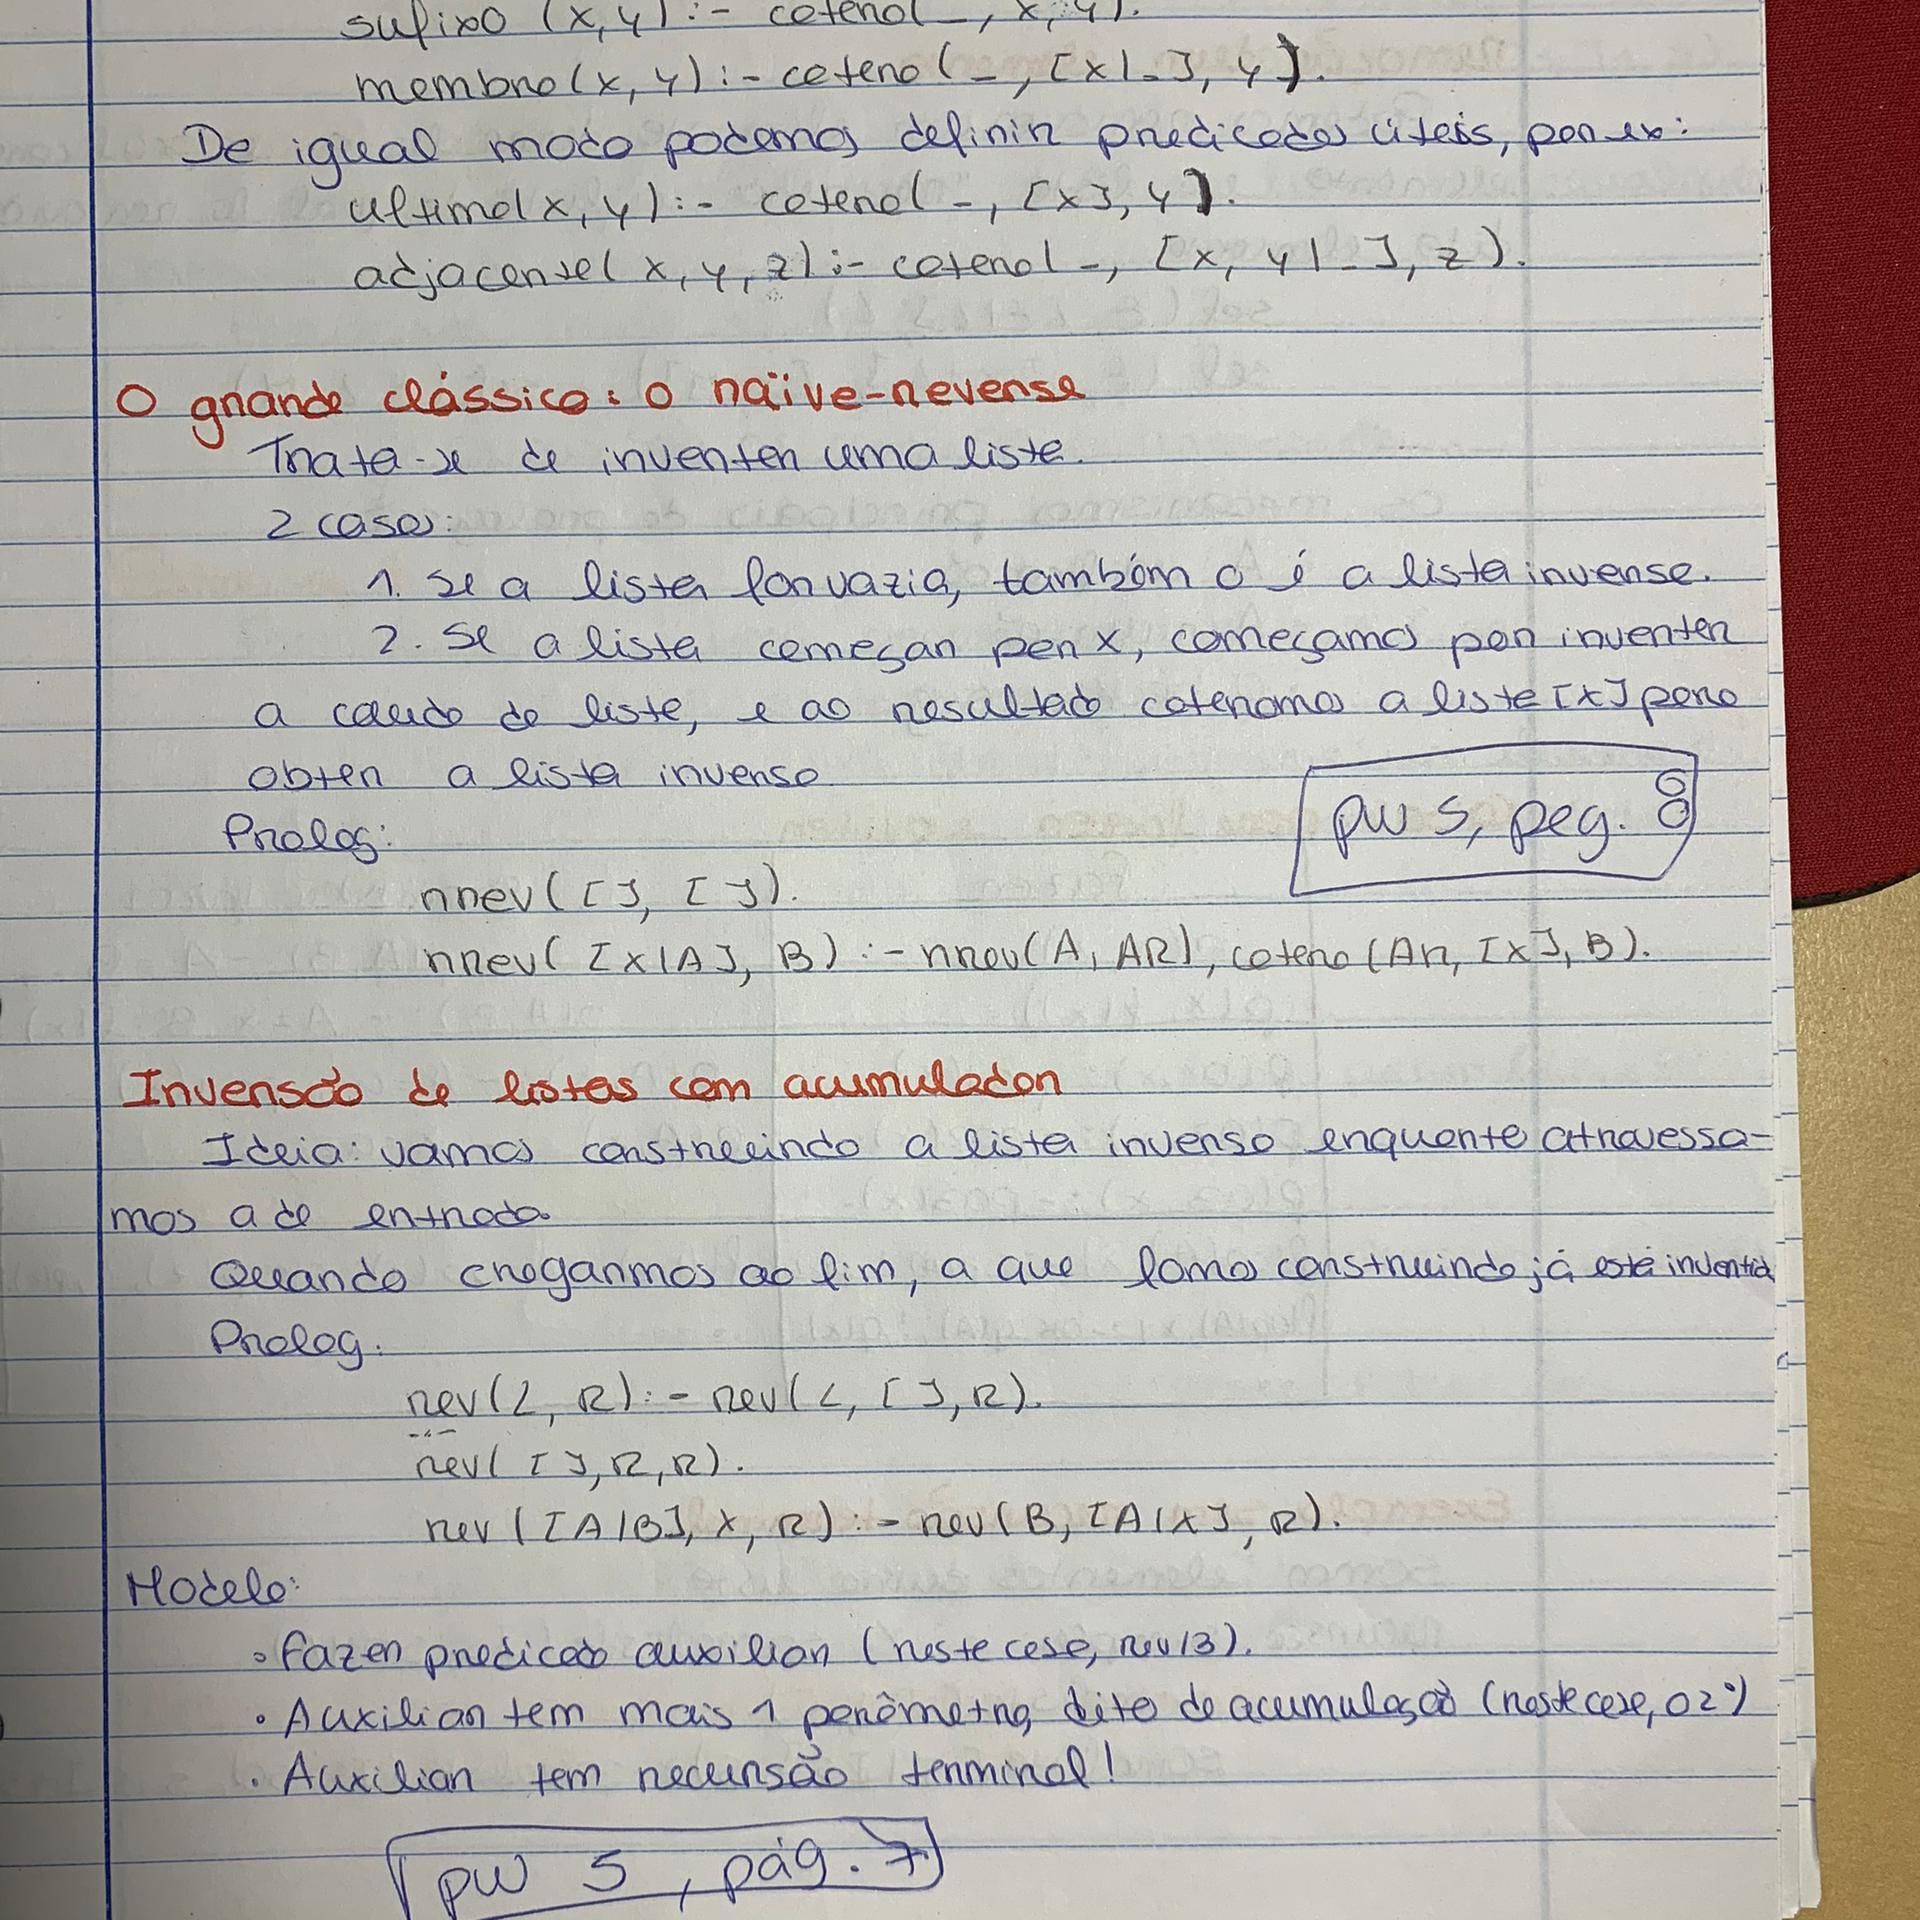 sufixo (x, y) :- catena( _, x, y).
membro(x, y) :- catena( _, [x|_], y).
De igual modo podemos definir predicados úteis, por ex:
ultimo(x, y) :- catena( _, [x], y).
adjacente( x, y, z) :- catena( _, [x, y|_], z).
O grande clássico: o naïve-reverse
Trata-se de inverter uma lista.
2 casos:
1. Se a lista for vazia, também o é a lista inversa.
2. Se a lista começar por x, começamos por inverter
a cauda da lista, e ao resultado catenamos a lista [x] para
obter a lista inversa
pw 5, pag. 8
Prolog:
nrev([], []).
nrev([x|A], B) :- nrev(A, AR), catena(AR, [x], B).
Inversão de listas com acumulador
Ideia: vamos construindo a lista inversa enquanto atravessa-
mos a de entrada.
Quando chegarmos ao fim, a que fomos construindo já está invertida
Prolog:
rev(L, R) :- rev(L, [], R).
rev([], R, R).
rev([A|B], X, R) :- rev(B, [A|X], R).
Modelo:
• Fazer predicado auxiliar (neste caso, rev/3).
• Auxiliar tem mais 1 parâmetro, dito de acumulação (neste caso, o 2º)
• Auxiliar tem recursão terminal!
pw 5, pág. 7